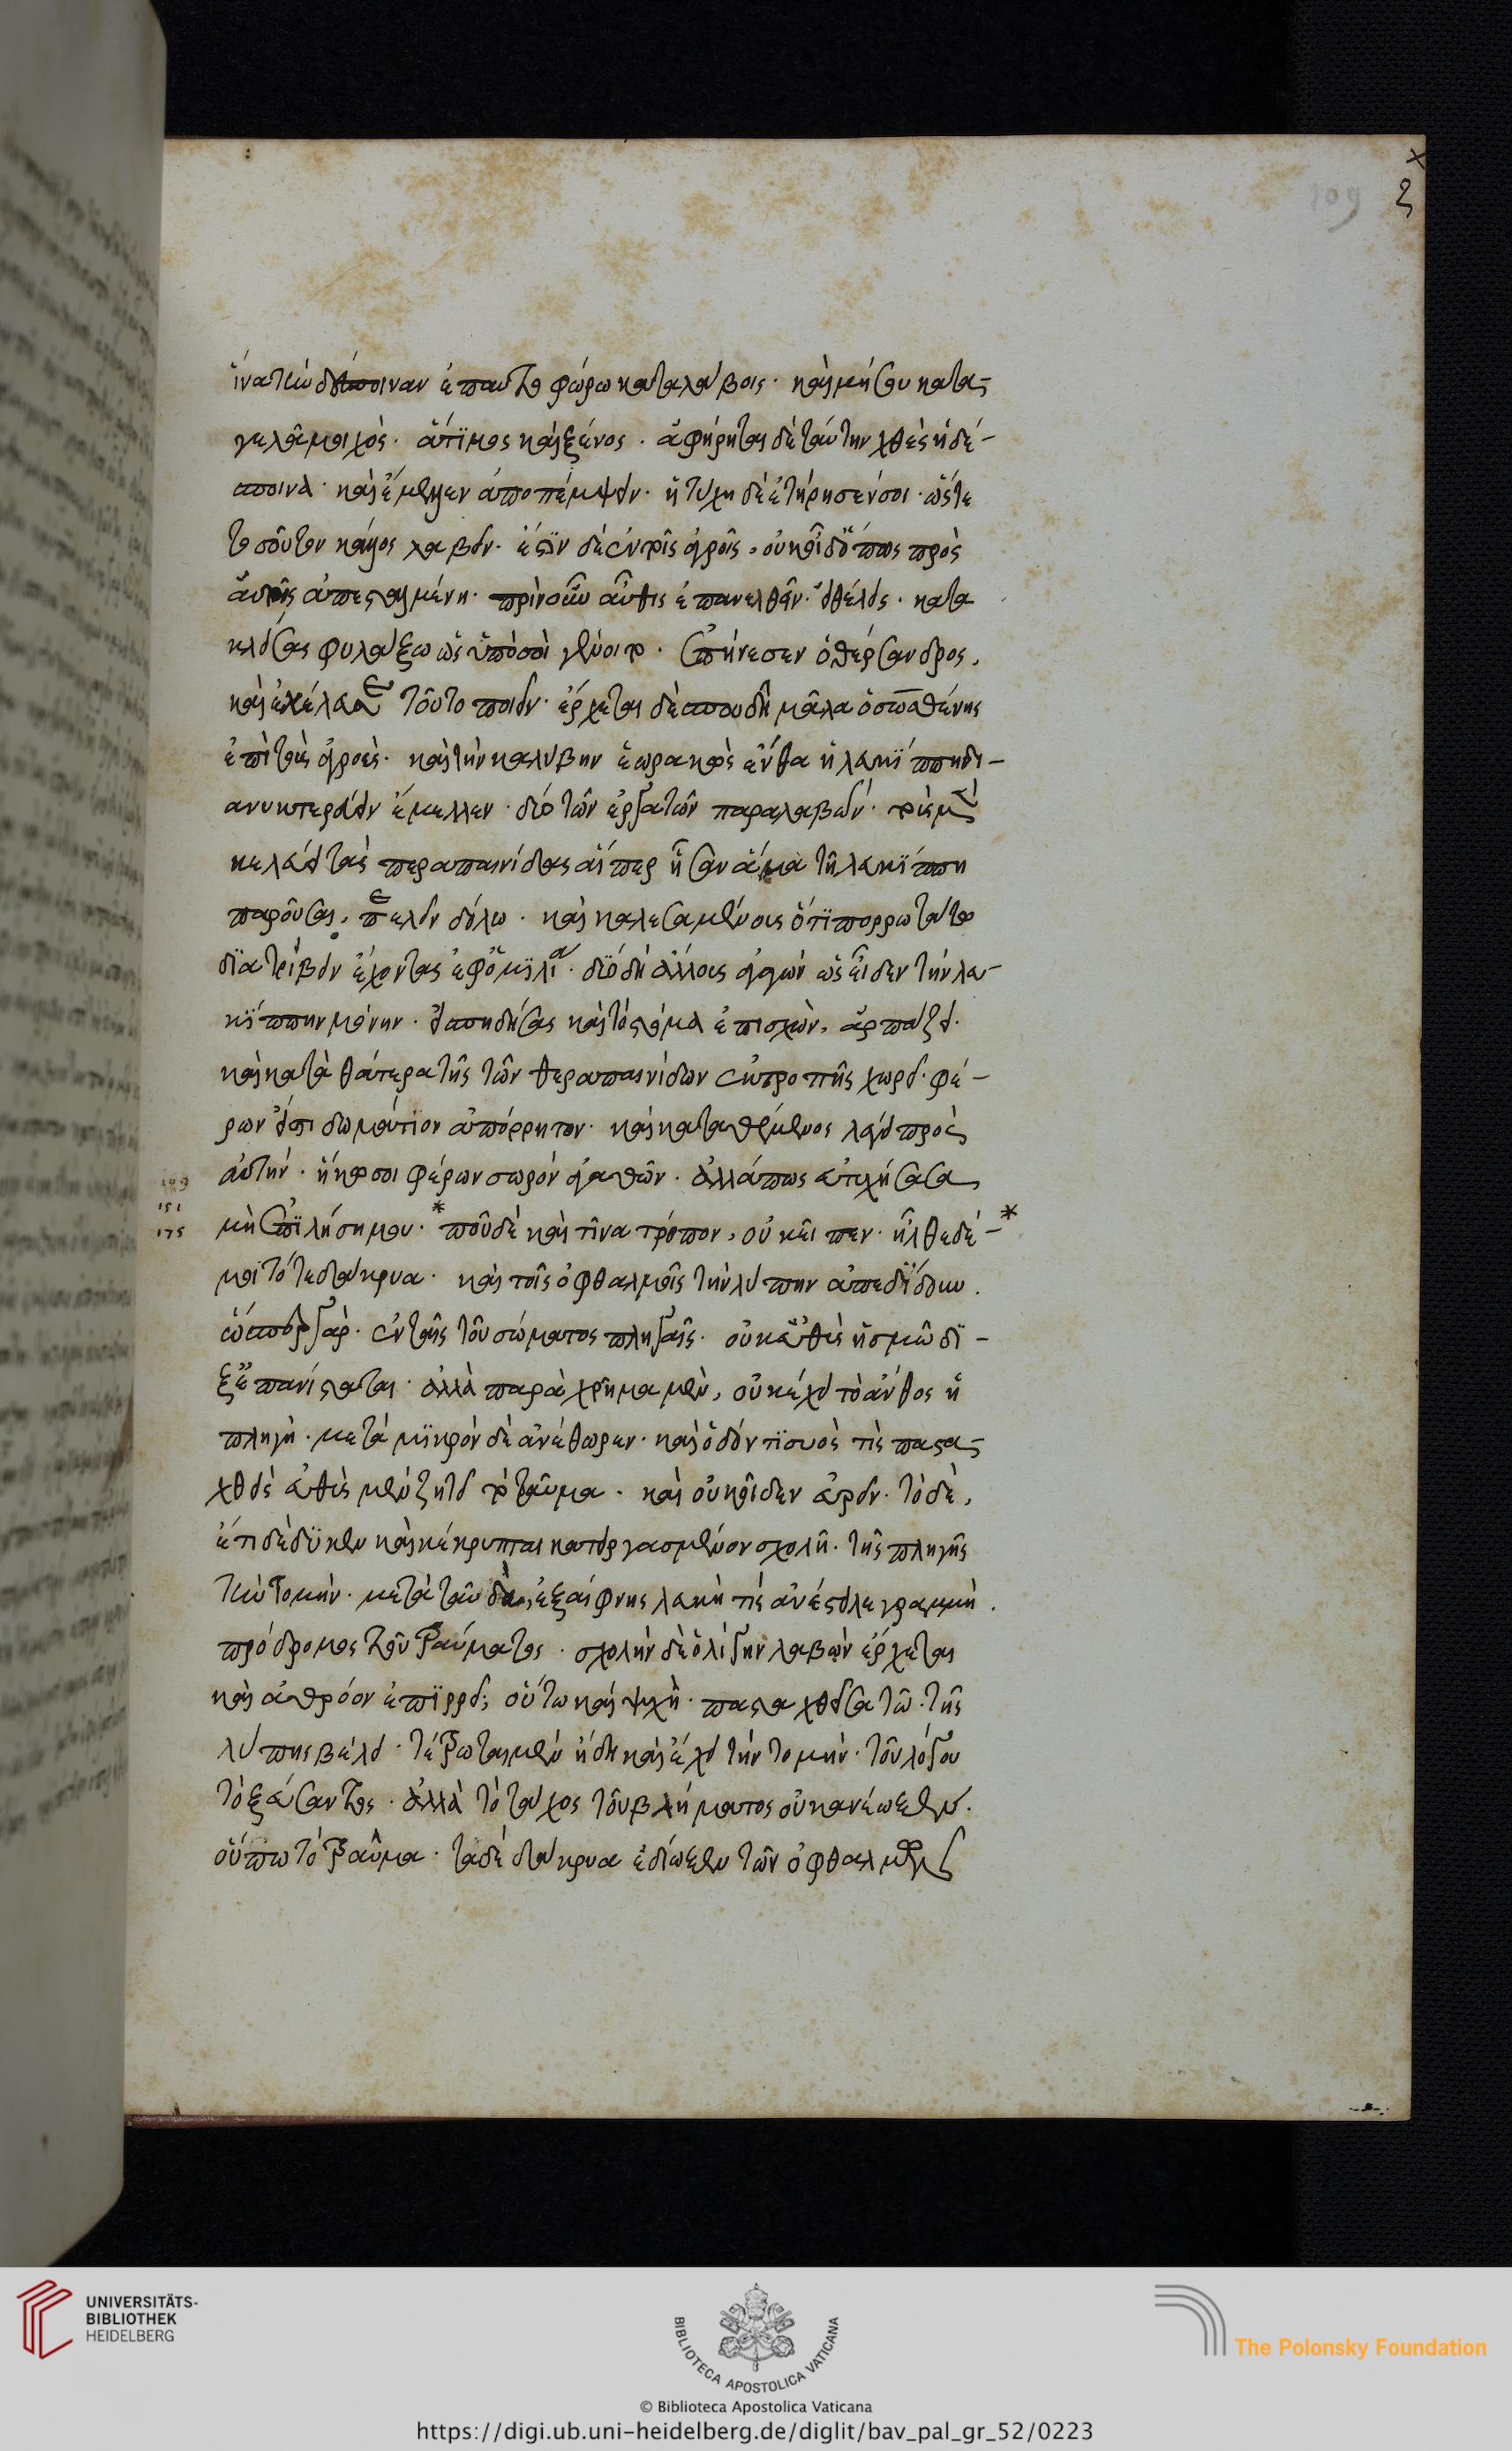 109 ξ
ἵνα τὴν δέσποιναν ἐπαυτο φώρω καταλάβοις· καὶ μή σου κατα-
γελᾶ μοιχὸς· ἄτϊμος καὶ ξένος· ἀφήρηται δὲ ταύτην χθὲς ἡ δέ-
σποινα· καὶ ἔμελλεν ἀποπέμψειν· ἡ τύχη δὲ ἐτήρησεν σοι· ὥστε
τοσοῦτον κάλλος λαβεῖν· ἔστϊν δὲ ἐν τοῖς ἀγροῖς, οὐκ οἶδ' ὅπως πρὸς
αὐτῆς ἀπεσταλμένη· πρὶν οὖν αὖθις ἐπανελθεῖν· εἰ θέλεις· κατα
κλείσας φυλάξω ὡς ὑπὸ σοὶ γένοιτο· ἐπήνεσεν ὁ θέρσανδρος,
καὶ ἐκέλευσε τοῦτο ποιεῖν· ἔρχεται δὲ σπουδῆ μάλα ὁ σωσθένης
ἐπὶ τοὺς ἀγροὺς· καὶ τὴν καλύβην ἑωρακὼς ἔνθα ἡ λευκΐππη δι-
ανυκτερεύειν ἔμελλεν· δύο τῶν ἐργατῶν παραλαβὼν· τοὺς μὲν
κελεύει τὰς θεραπαινίδας αἵπερ ἦσαν ἅμα τῆ λευκΐππη
παροῦσαι, περιελθεῖν δόλω· καὶ καλεσαμένους ὅτϊ πορρωτάτω
δϊατρίβειν ἔχοντας ἐφ' ὁμϊλία· δΰο δὴ ἄλλους ἄγων ὡς εἶδεν τὴν λευ-
κΐππην μόνην· εἰσπηδήσας καὶ τὸ στόμα ἐπισχὼν, ἁρπάζει·
καὶ κατὰ θάτερα τῆς τῶν θεραπαινίδων ἐκτροπῆς χωρεῖ· φέ-
ρων εἴς τι δωμάτϊον ἀπόρρητον· καὶ καταθέμενος λέγει πρὸς
αὐτήν· ἥκω σοι φέρων σωρὸν ἀγαθῶν· ἀλλ' ὅπως εὐτυχήσασα
109
151
175
μὴ ἐπϊλήση μου· * ποῦ δὲ καὶ τίνα τρόπον, οὐκ εἶπεν· ἦλθε δέ- *
μοι τότε δάκρυα· καὶ τοῖς ὀφθαλμοῖς τὴν λύπην ἀπεδΐδουν.
ὥσπερ γὰρ· ἐν ταῖς τοῦ σώματος πληγαῖς· οὐκ εὐθὺς ἡ σμῶδϊ-
ξ ἐπανίσταται· ἀλλὰ παρὰ χρῆμα μὲν, οὐκ ἔχει τὸ ἄνθος ἡ
πληγὴ· μετὰ μϊκρὸν δὲ ἀνέθορεν· καὶ ὀδόντϊ συός τὶς πατα-
χθεὶς εὐθὺς μὲν ζητεῖ τὸ τραῦμα· καὶ οὐκ οἶδεν εὑρεῖν· τὸ δὲ,
ἔτι δέδϋκεν καὶ κέκρυπται κατειργασμένον σχολῆ· τῆς πληγῆς
τὴν τομήν· μετὰ ταῦτα δὲ, ἐξαίφνης λευκή τις ἀνέτειλε γραμμὴ.
πρόδρομος τοῦ τραύματος· σχολὴν δὲ ὀλίγην λαβὼν ἔρχεται
καὶ ἀθρόον ἐπϊρρεῖ; οὕτω καὶ ψυχὴ· παταχθεῖσα τῶ· τῆς
λύπης βέλει· τέτρωται μὲν ἤδη καὶ ἔχει τὴν τομὴν· τοῦ λόγου
τοξεύσαντος· ἀλλὰ τὸ τάχος τοῦ βλήματος οὐκ ἀνέωξεν·
οὔπω τὸ τραῦμα· τὰ δὲ δάκρυα ἐδίωξεν τῶν ὀφθαλμῶν
UNIVERSITÄTS-
BIBLIOTHEK
HEIDELBERG
BIBLIOTECA APOSTOLICA VATICANA
The Polonsky Foundation
© Biblioteca Apostolica Vaticana
https://digi.ub.uni-heidelberg.de/diglit/bav_pal_gr_52/0223